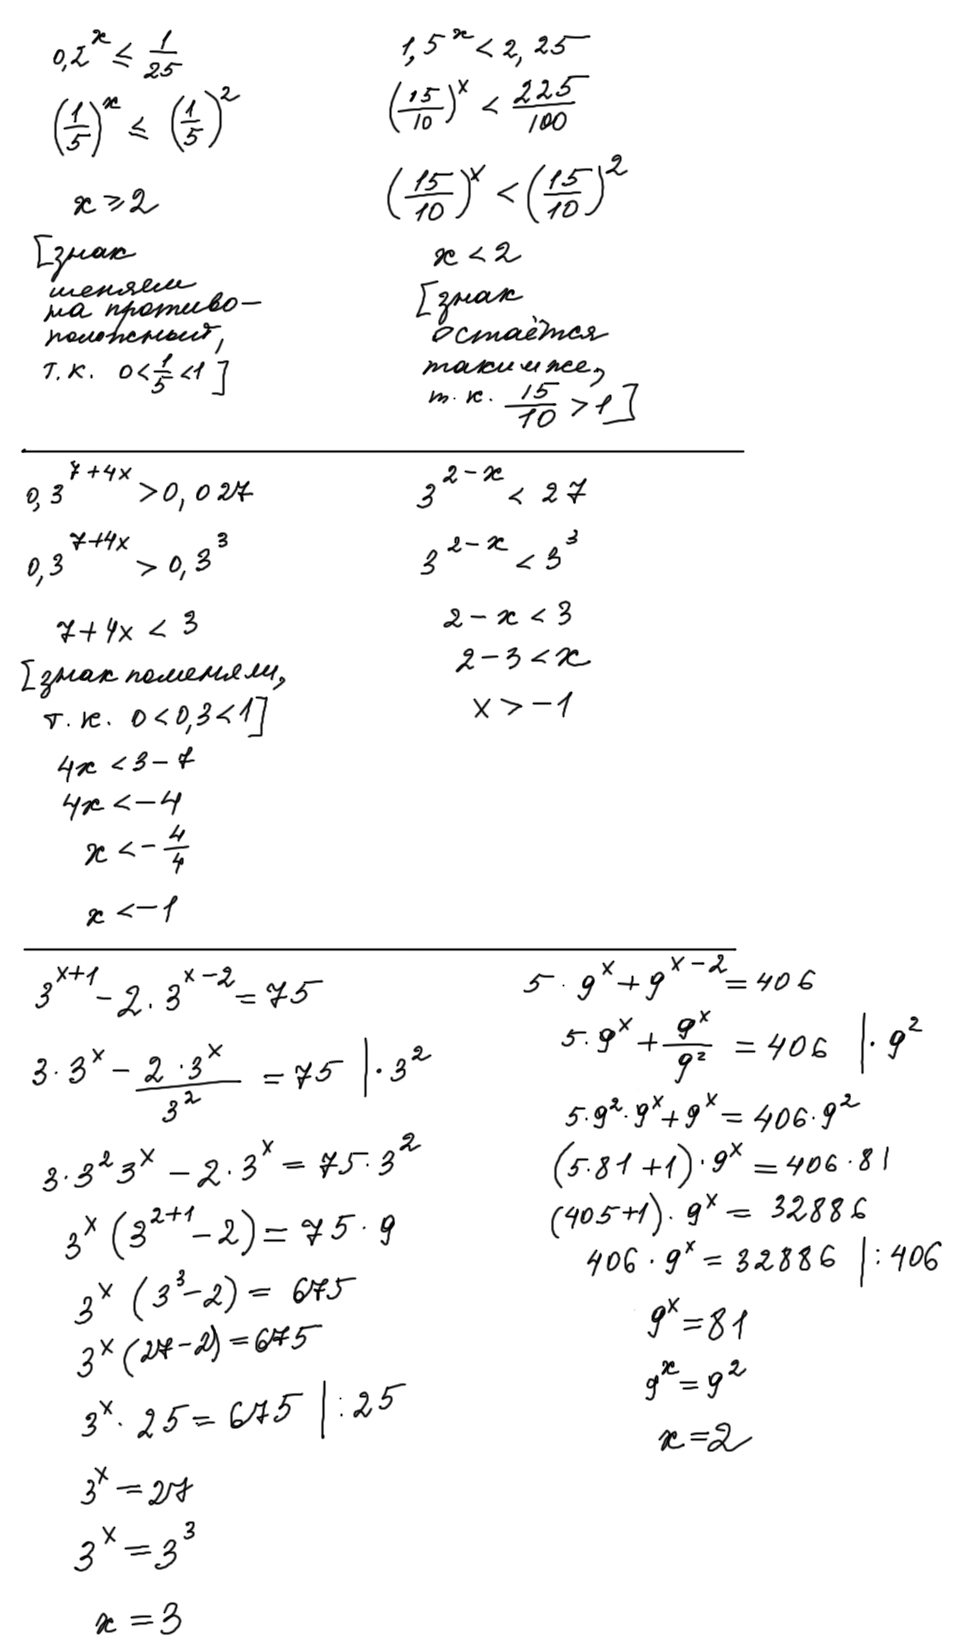 0,2^x ≤ 1/25
(1/5)^x ≤ (1/5)^2
x ≥ 2
[знак
меняем
на противо-
положный,
т.к. 0<1/5<1]
1,5^x < 2,25
(15/10)^x < 225/100
(15/10)^x < (15/10)^2
x < 2
[знак
остаётся
таким же,
т.к. 15/10 > 1]
0,3^(7+4x) > 0,027
0,3^(7+4x) > 0,3^3
7+4x < 3
[знак поменяли,
т.к. 0<0,3<1]
4x < 3-7
4x < -4
x < -4/4
x < -1
3^(2-x) < 27
3^(2-x) < 3^3
2-x < 3
2-3 < x
x > -1
3^(x+1) - 2·3^(x-2) = 75
3·3^x - 2·3^x/3^2 = 75 |·3^2
3·3^2 3^x - 2·3^x = 75·3^2
3^x (3^(2+1) - 2) = 75·9
3^x (3^3-2) = 675
3^x (27-2) = 675
3^x · 25 = 675 |:25
3^x = 27
3^x = 3^3
x = 3
5·9^x + 9^(x-2) = 406
5·9^x + 9^x/9^2 = 406 |·9^2
5·9^2·9^x + 9^x = 406·9^2
(5·81+1)·9^x = 406·81
(405+1)·9^x = 32886
406·9^x = 32886 |:406
9^x = 81
9^x = 9^2
x = 2